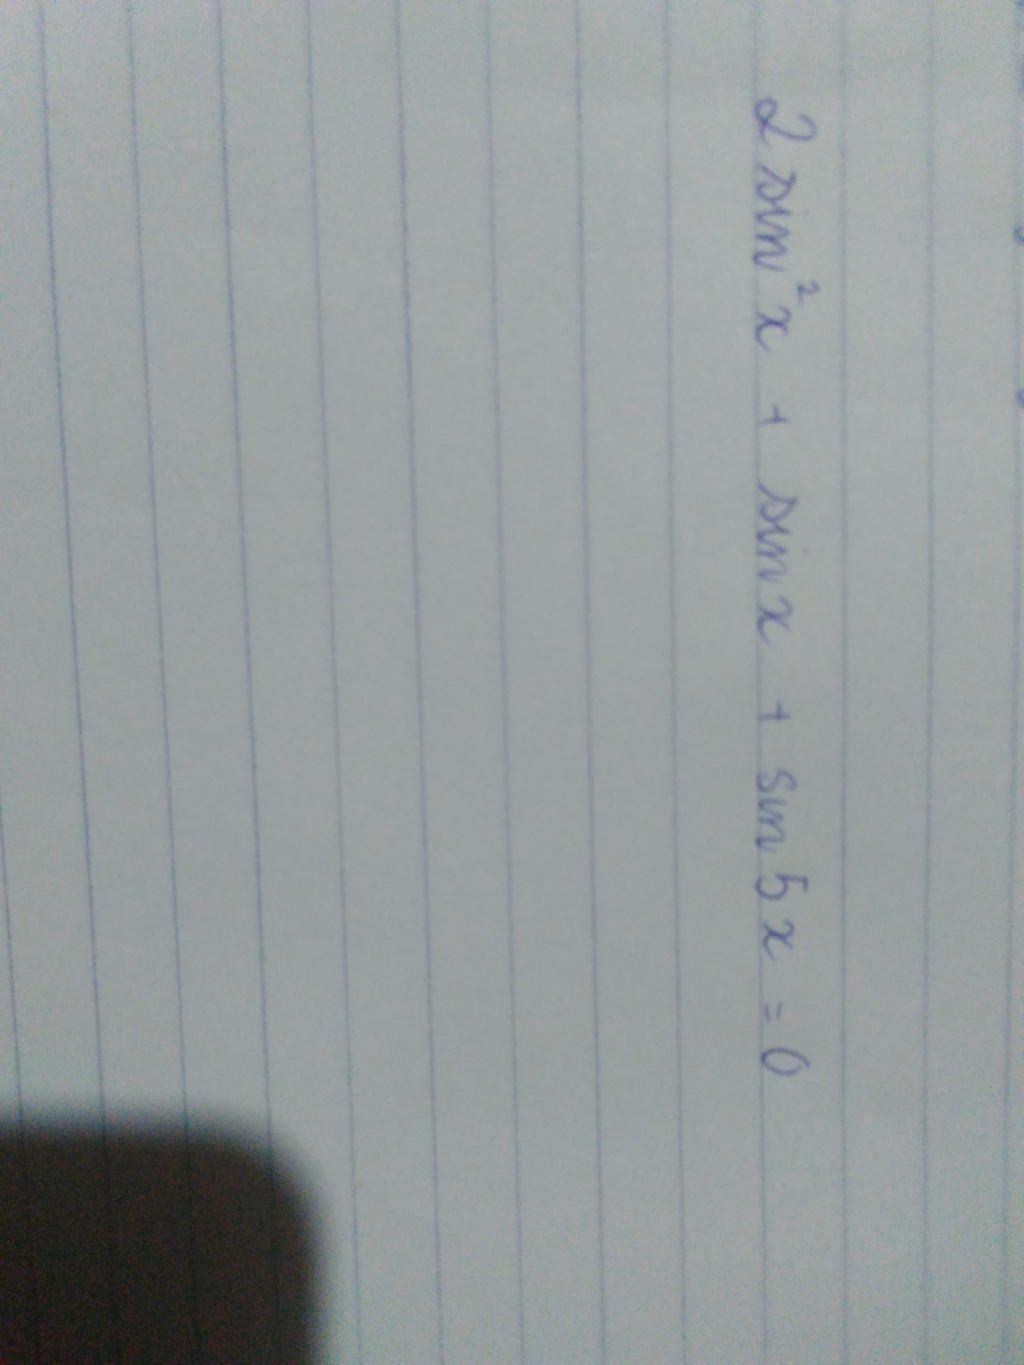 2 sin²x + sin x + sin 5x = 0